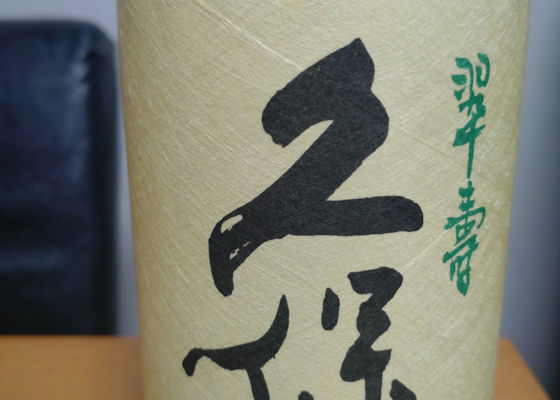 久保
翠壽